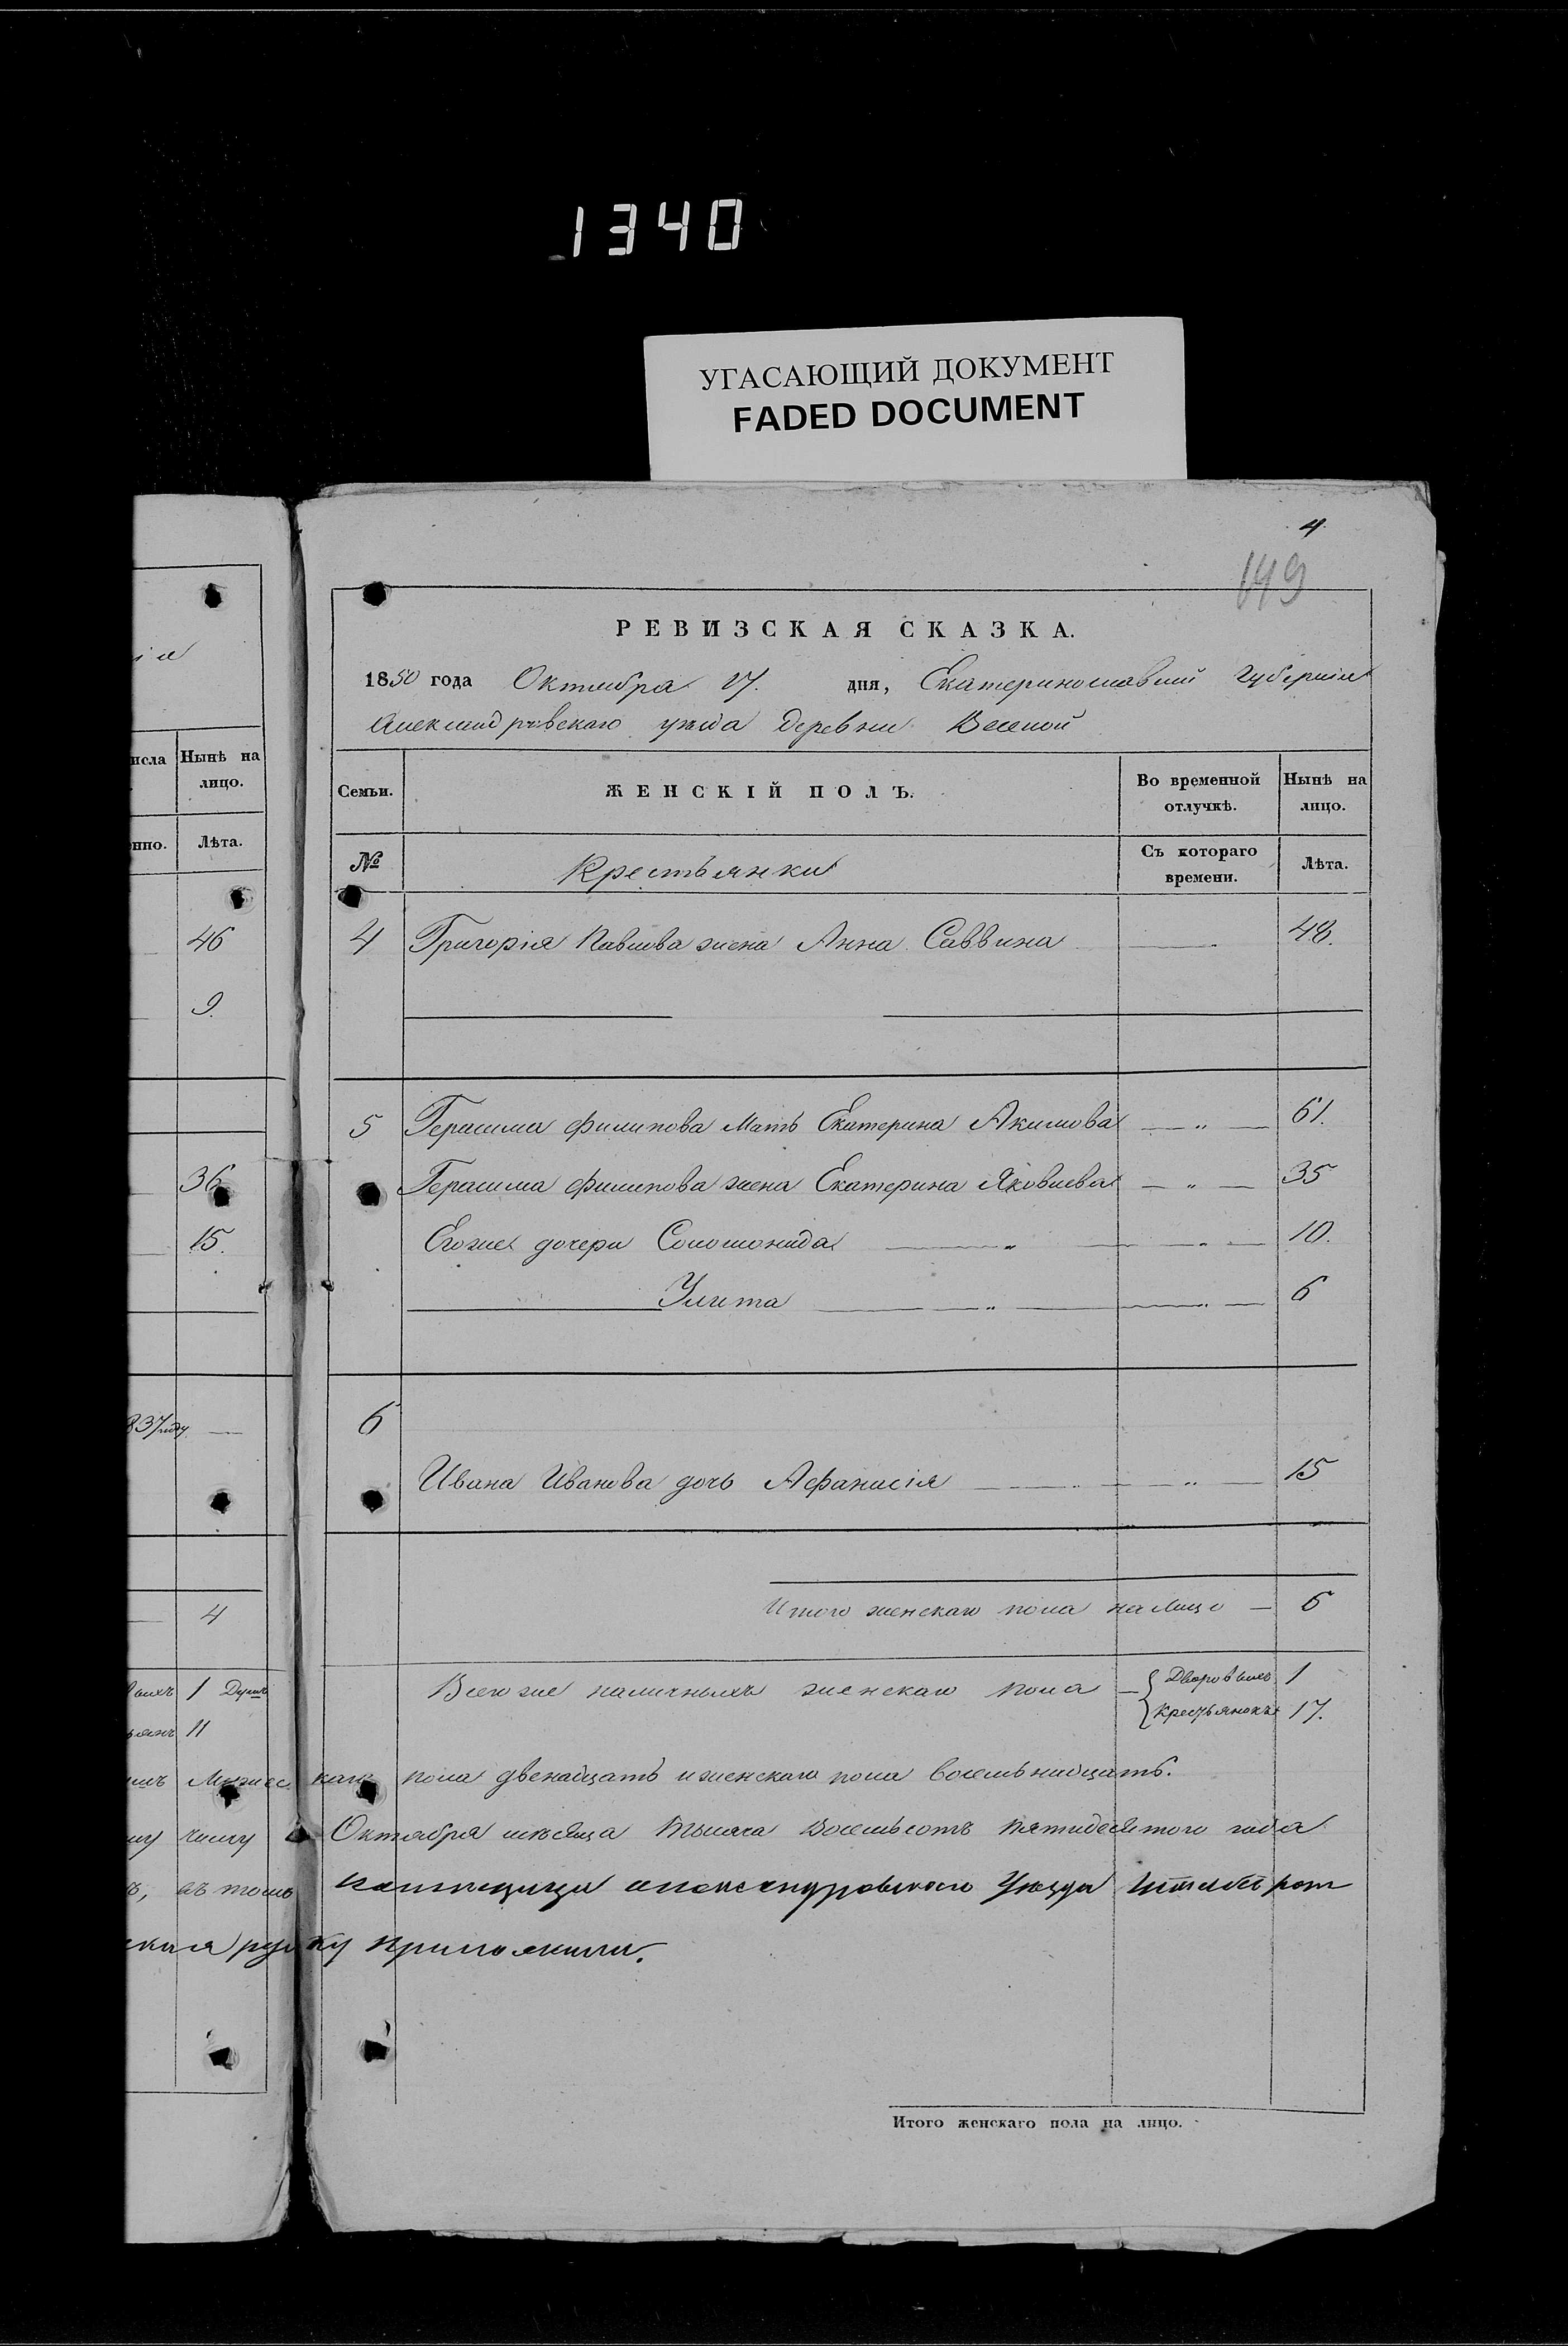 1340
УГАСАЮЩИЙ ДОКУМЕНТ
FADED DOCUMENT
4
149
РЕВИЗСКАЯ СКАЗКА.
1850 года Октября 17. дня, Екатеринославской Губерніи
Александровскаго уѣзда Деревни Веселой
Семьи.
ЖЕНСКІЙ ПОЛЪ.
Во временной отлучкѣ.
Нынѣ на лицо.
№
Крестьянки
Съ котораго времени.
Лѣта.
4 Григорія Павлова жена Анна Саввина — 48.
5 Герасима Филипова Мать Екатерина Акимова — „ — 61.
Герасима Филипова жена Екатерина Яковлева — „ — 35
Егоже дочери Соломонида — „ — „ — 10.
Улита — „ — „ — 6
6
Ивана Иванова дочь Афанисія — „ — „ — 15
Итого женскаго пола на Лицо — 6
Всегоже наличныхъ женскаго пола — Дворовыхъ 1
Крестьянокъ 17.
каго пола двенадцать и женскаго пола восемьнадцать.
Октября мѣсяца Тысяча Восемьсотъ Пятидесятого года
Александровскаго Уѣзда
руку приложили.
Итого женскаго пола на лицо.
исла
Нынѣ на лицо.
нно.
Лѣта.
46
9.
36
15.
837 году —
4
выхъ 1 Душъ
ьянъ 11
Мужес
числу
въ томъ